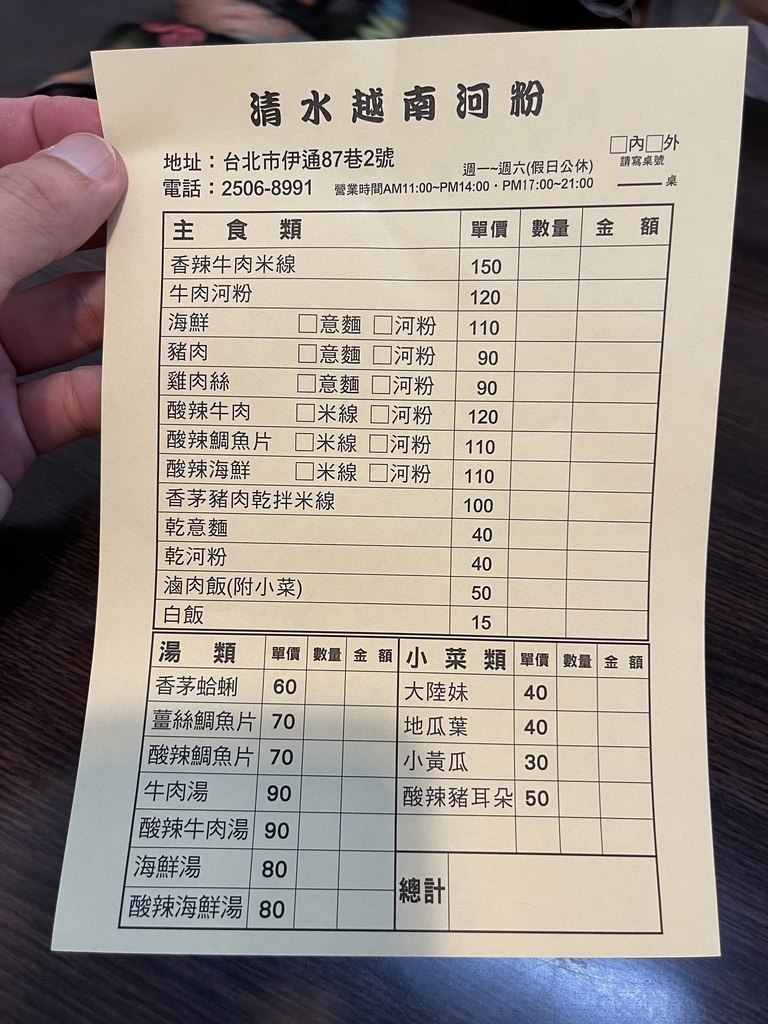 清水越南河粉
□內□外
請寫桌號
桌
地址：台北市伊通87巷2號
週一~週六(假日公休)
電話：2506-8991
營業時間AM11:00~PM14:00・PM17:00~21:00
主食類 單價 數量 金額
香辣牛肉米線 150
牛肉河粉 120
海鮮 □意麵 □河粉 110
豬肉 □意麵 □河粉 90
雞肉絲 □意麵 □河粉 90
酸辣牛肉 □米線 □河粉 120
酸辣鯛魚片 □米線 □河粉 110
酸辣海鮮 □米線 □河粉 110
香茅豬肉乾拌米線 100
乾意麵 40
乾河粉 40
滷肉飯(附小菜) 50
白飯 15
湯類 單價 數量 金額
香茅蛤蜊 60
薑絲鯛魚片 70
酸辣鯛魚片 70
牛肉湯 90
酸辣牛肉湯 90
海鮮湯 80
酸辣海鮮湯 80
小菜類 單價 數量 金額
大陸妹 40
地瓜葉 40
小黃瓜 30
酸辣豬耳朵 50
總計